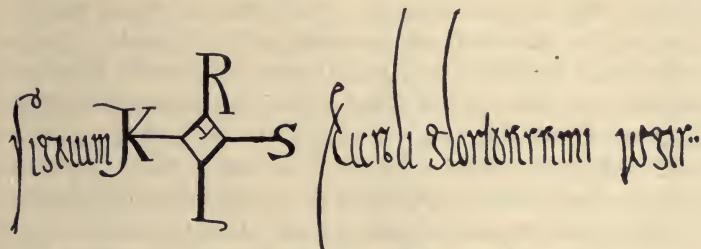 Signum K R L S Karoli gloriosissimi regis